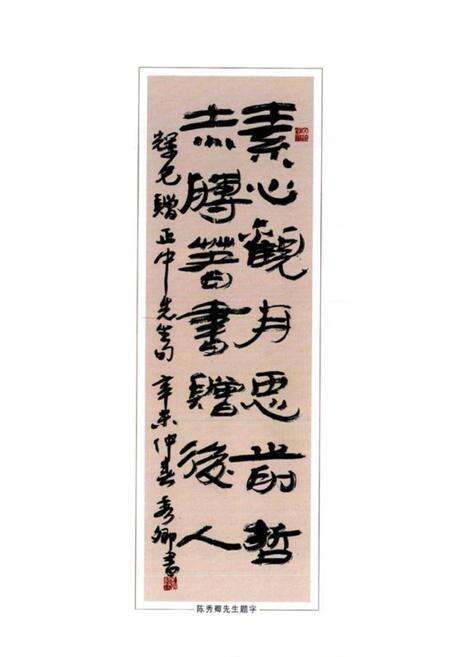 素心觀月思前哲
赤膊著書贈後人
耀它贈正中先生句 辛未仲春 秀卿書
陈秀卿先生题字